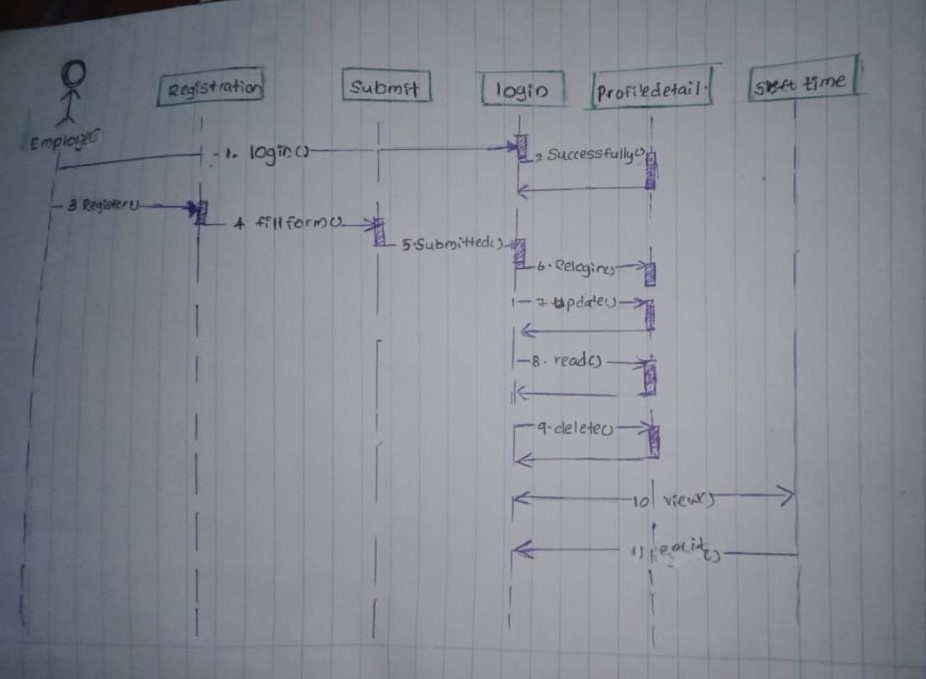 Registration
Submit
login
Profiledetail.
time
Employee
1. login()
2 Successfully()
3 Register()
4 fillform()
5.Submitted()
6.Relogin()
7 update()
8. read()
9.delete()
10 view()
11